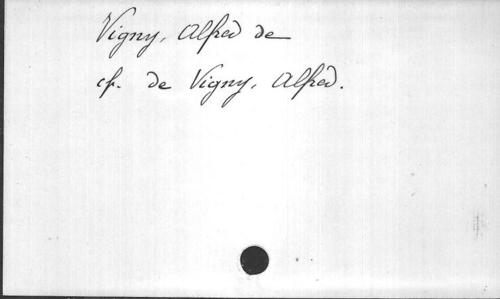 Vigny, Alfred de
cf. de Vigny, Alfred.